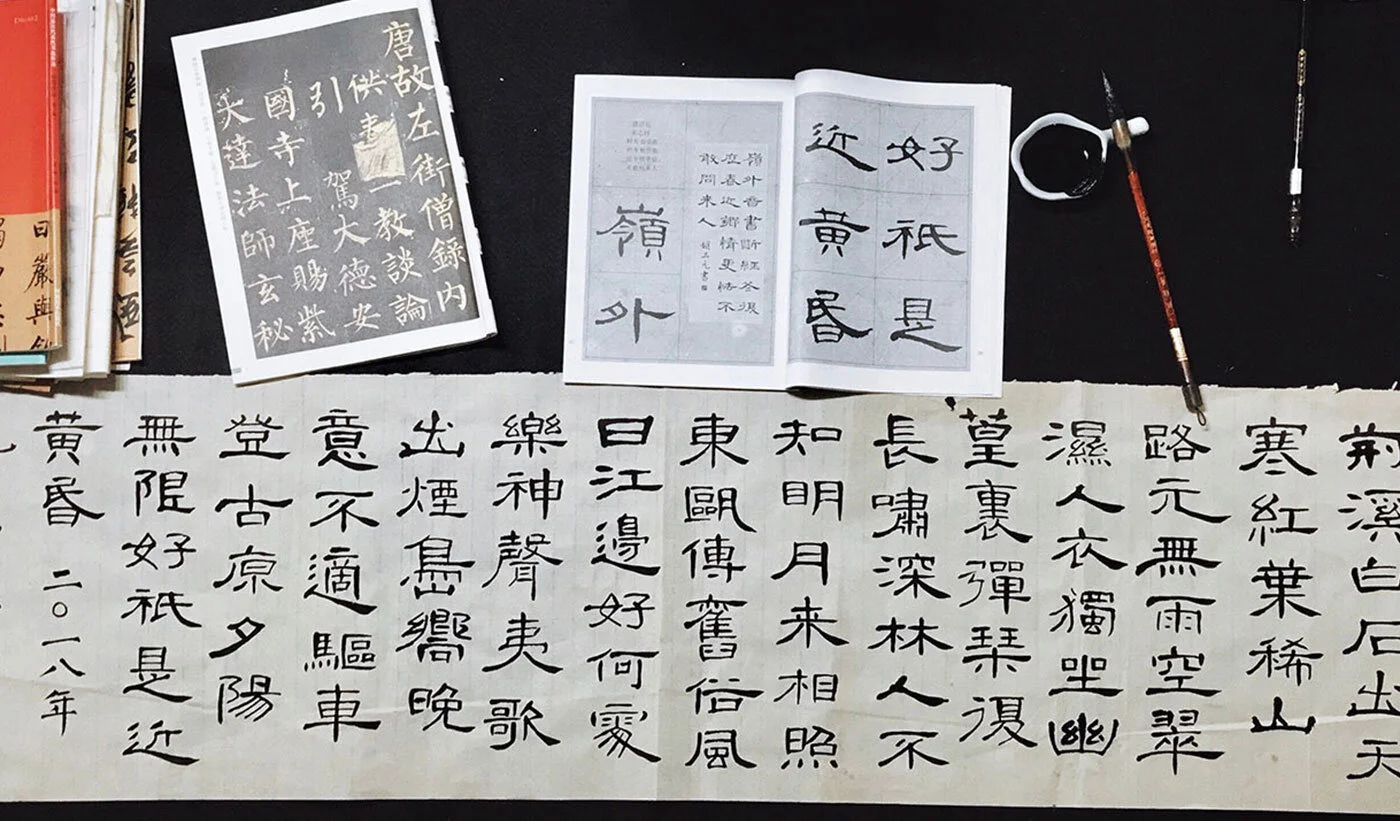 唐故左街僧錄內
供奉三教談論
引駕大德安
國寺上座賜紫
大達法師玄秘
好祇是
近黃昏
嶺外音書斷經冬復
立春近鄉情更怯不
敢問来人
嶺外
日嚴與
荊溪白石出天
寒紅葉稀山
路元無雨空翠
濕人衣獨坐幽
篁裏彈琴復
長嘯深林人不
知明月来相照
東甌傳舊俗風
日江邊好何處
樂神聲夷歌
出煙島響晚
意不適驅車
登古原夕陽
無限好祇是近
黃昏 二〇一八年